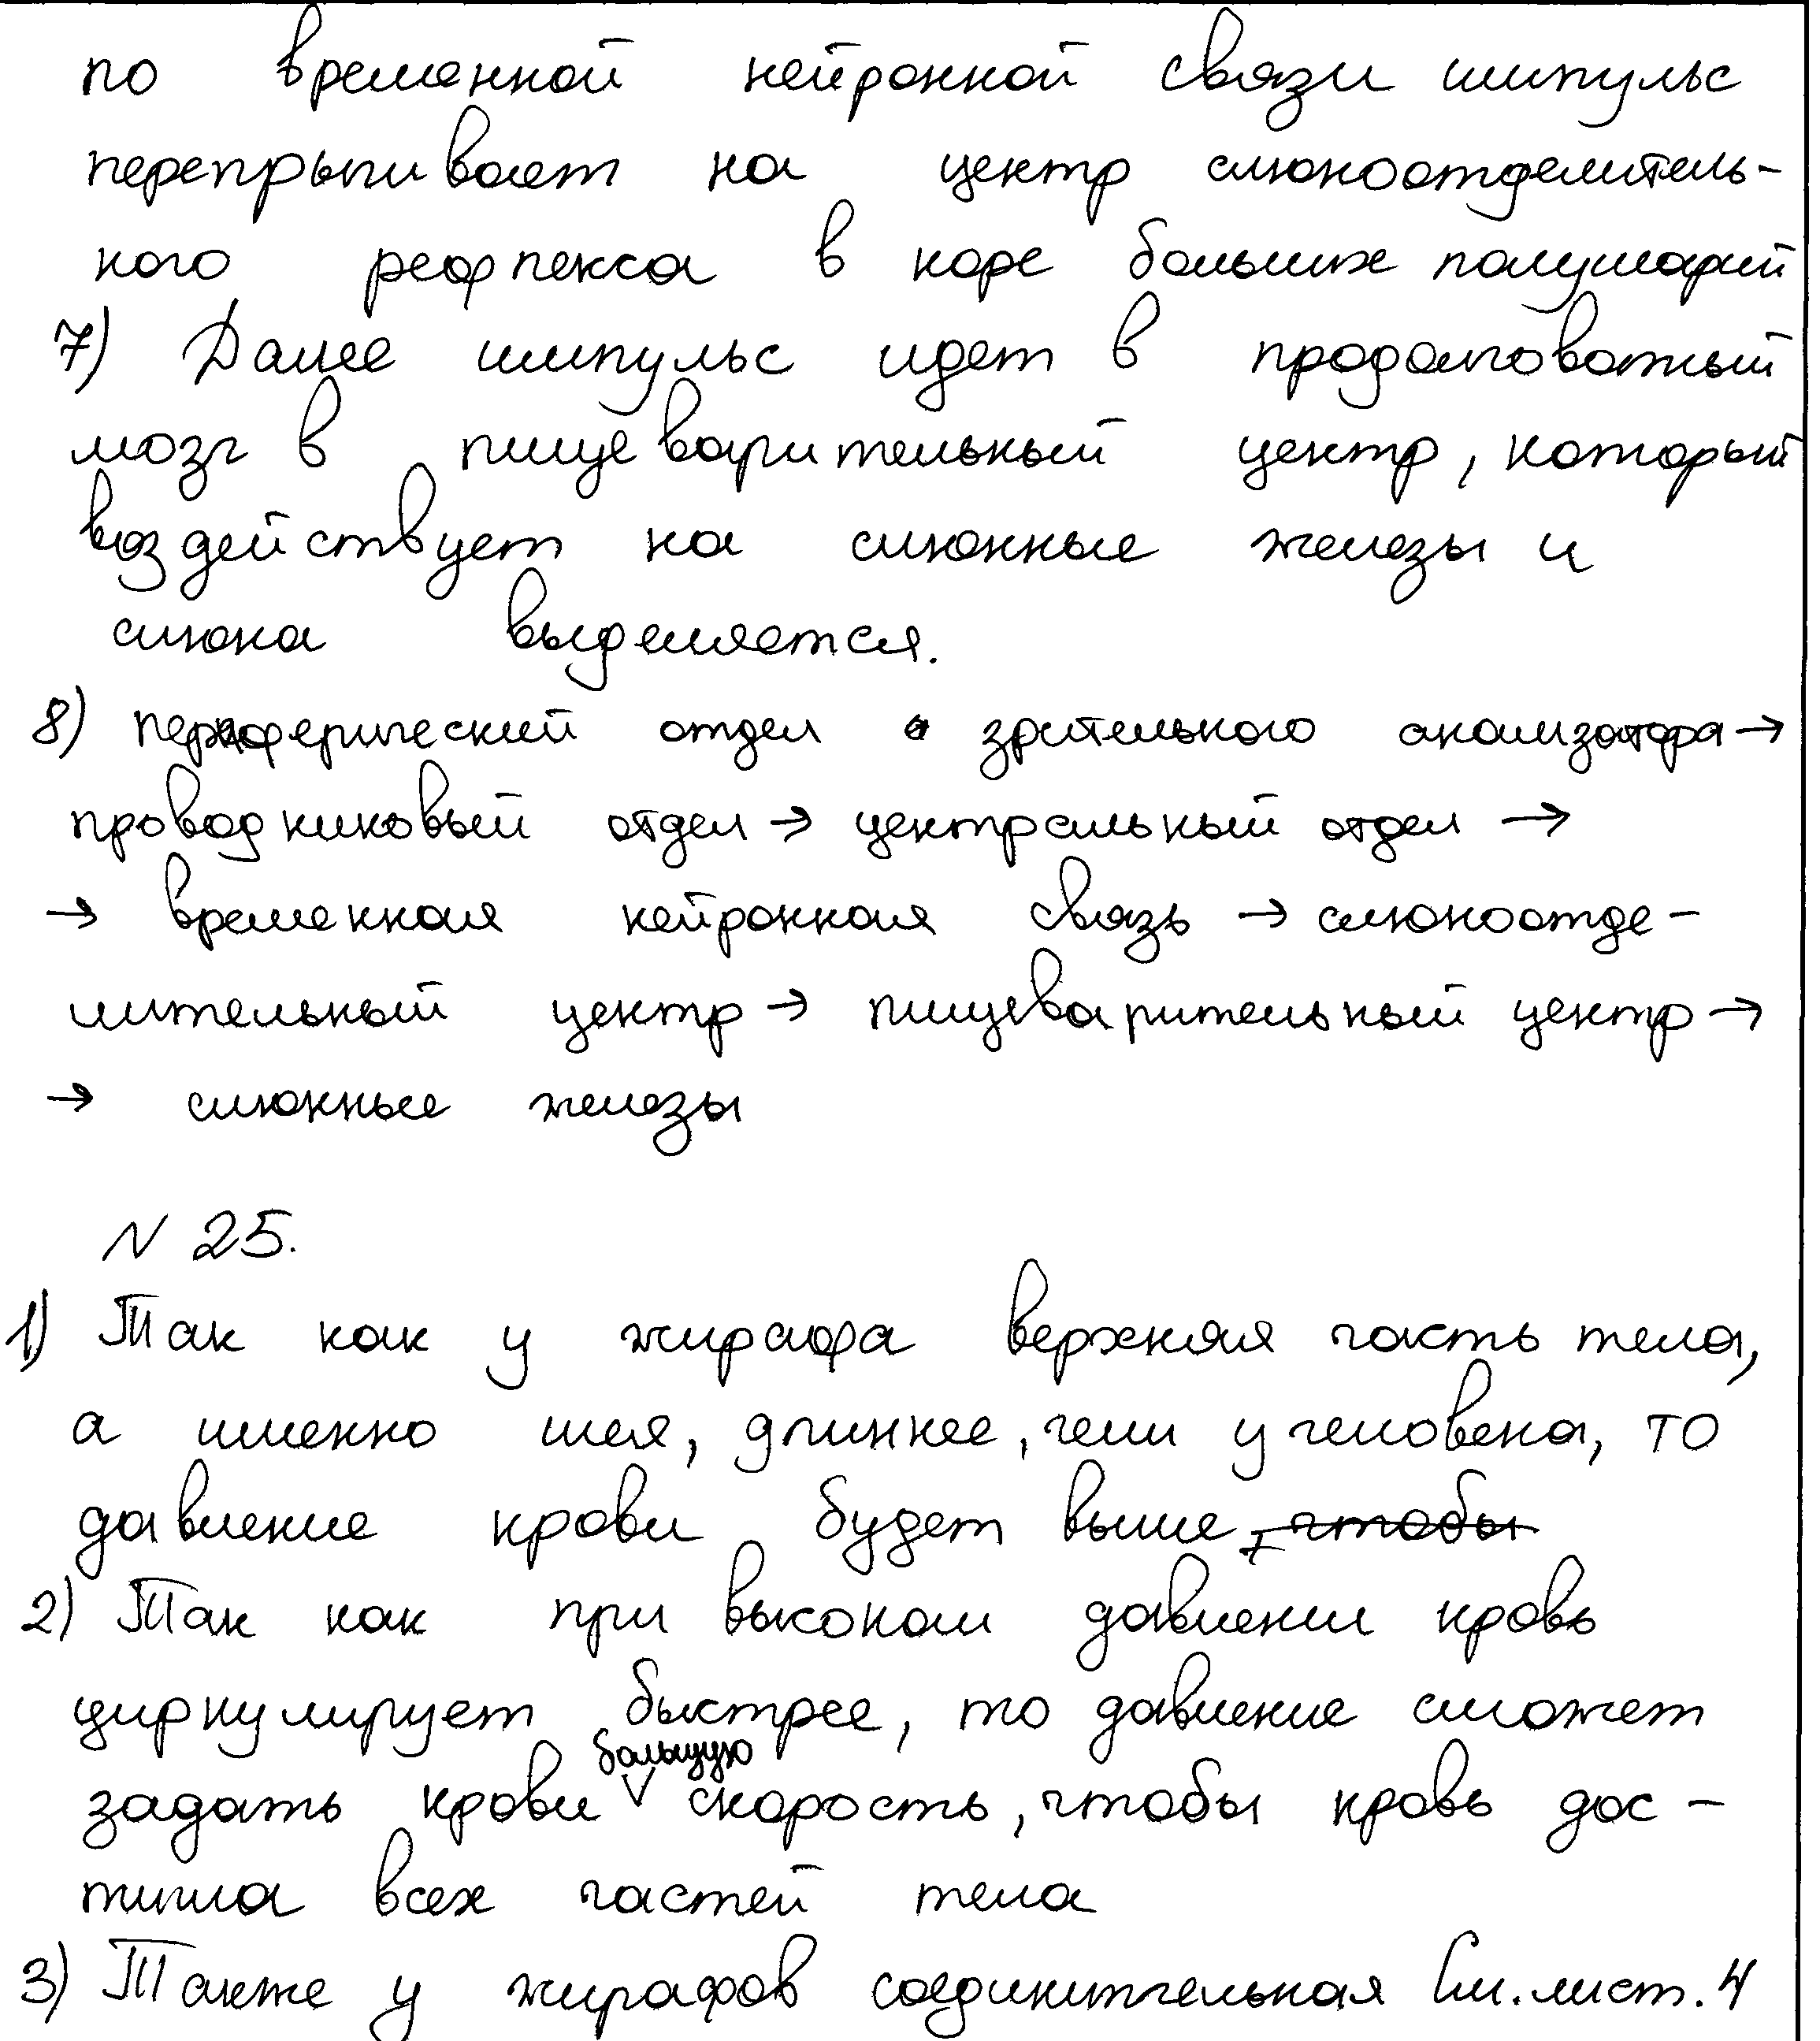 по временной нейронной связи импульс
перепрыгивает на центр слюноотделитель-
ного рефлекса в коре больших полушарий
7) Далее импульс идет в продолговатый
мозг в пищеварительный центр, который
воздействует на слюнные железы и
слюна выделяется.
8) периферический отдел зрительного анализатора →
проводниковый отдел → центральный отдел →
→ временная нейронная связь → слюноотде-
лительный центр → пищеварительный центр →
→ слюнные железы
N 25.
1) Так как у жирафа верхняя часть тела,
а именно шея, длиннее, чем у человека, то
давление крови будет выше, чтобы
2) Так как при высоком давлении кровь
циркулирует быстрее, то давление сможет
большую
задать крови V скорость, чтобы кровь дос-
тигла всех частей тела
3) Также у жирафов соединительная См. лист. 4